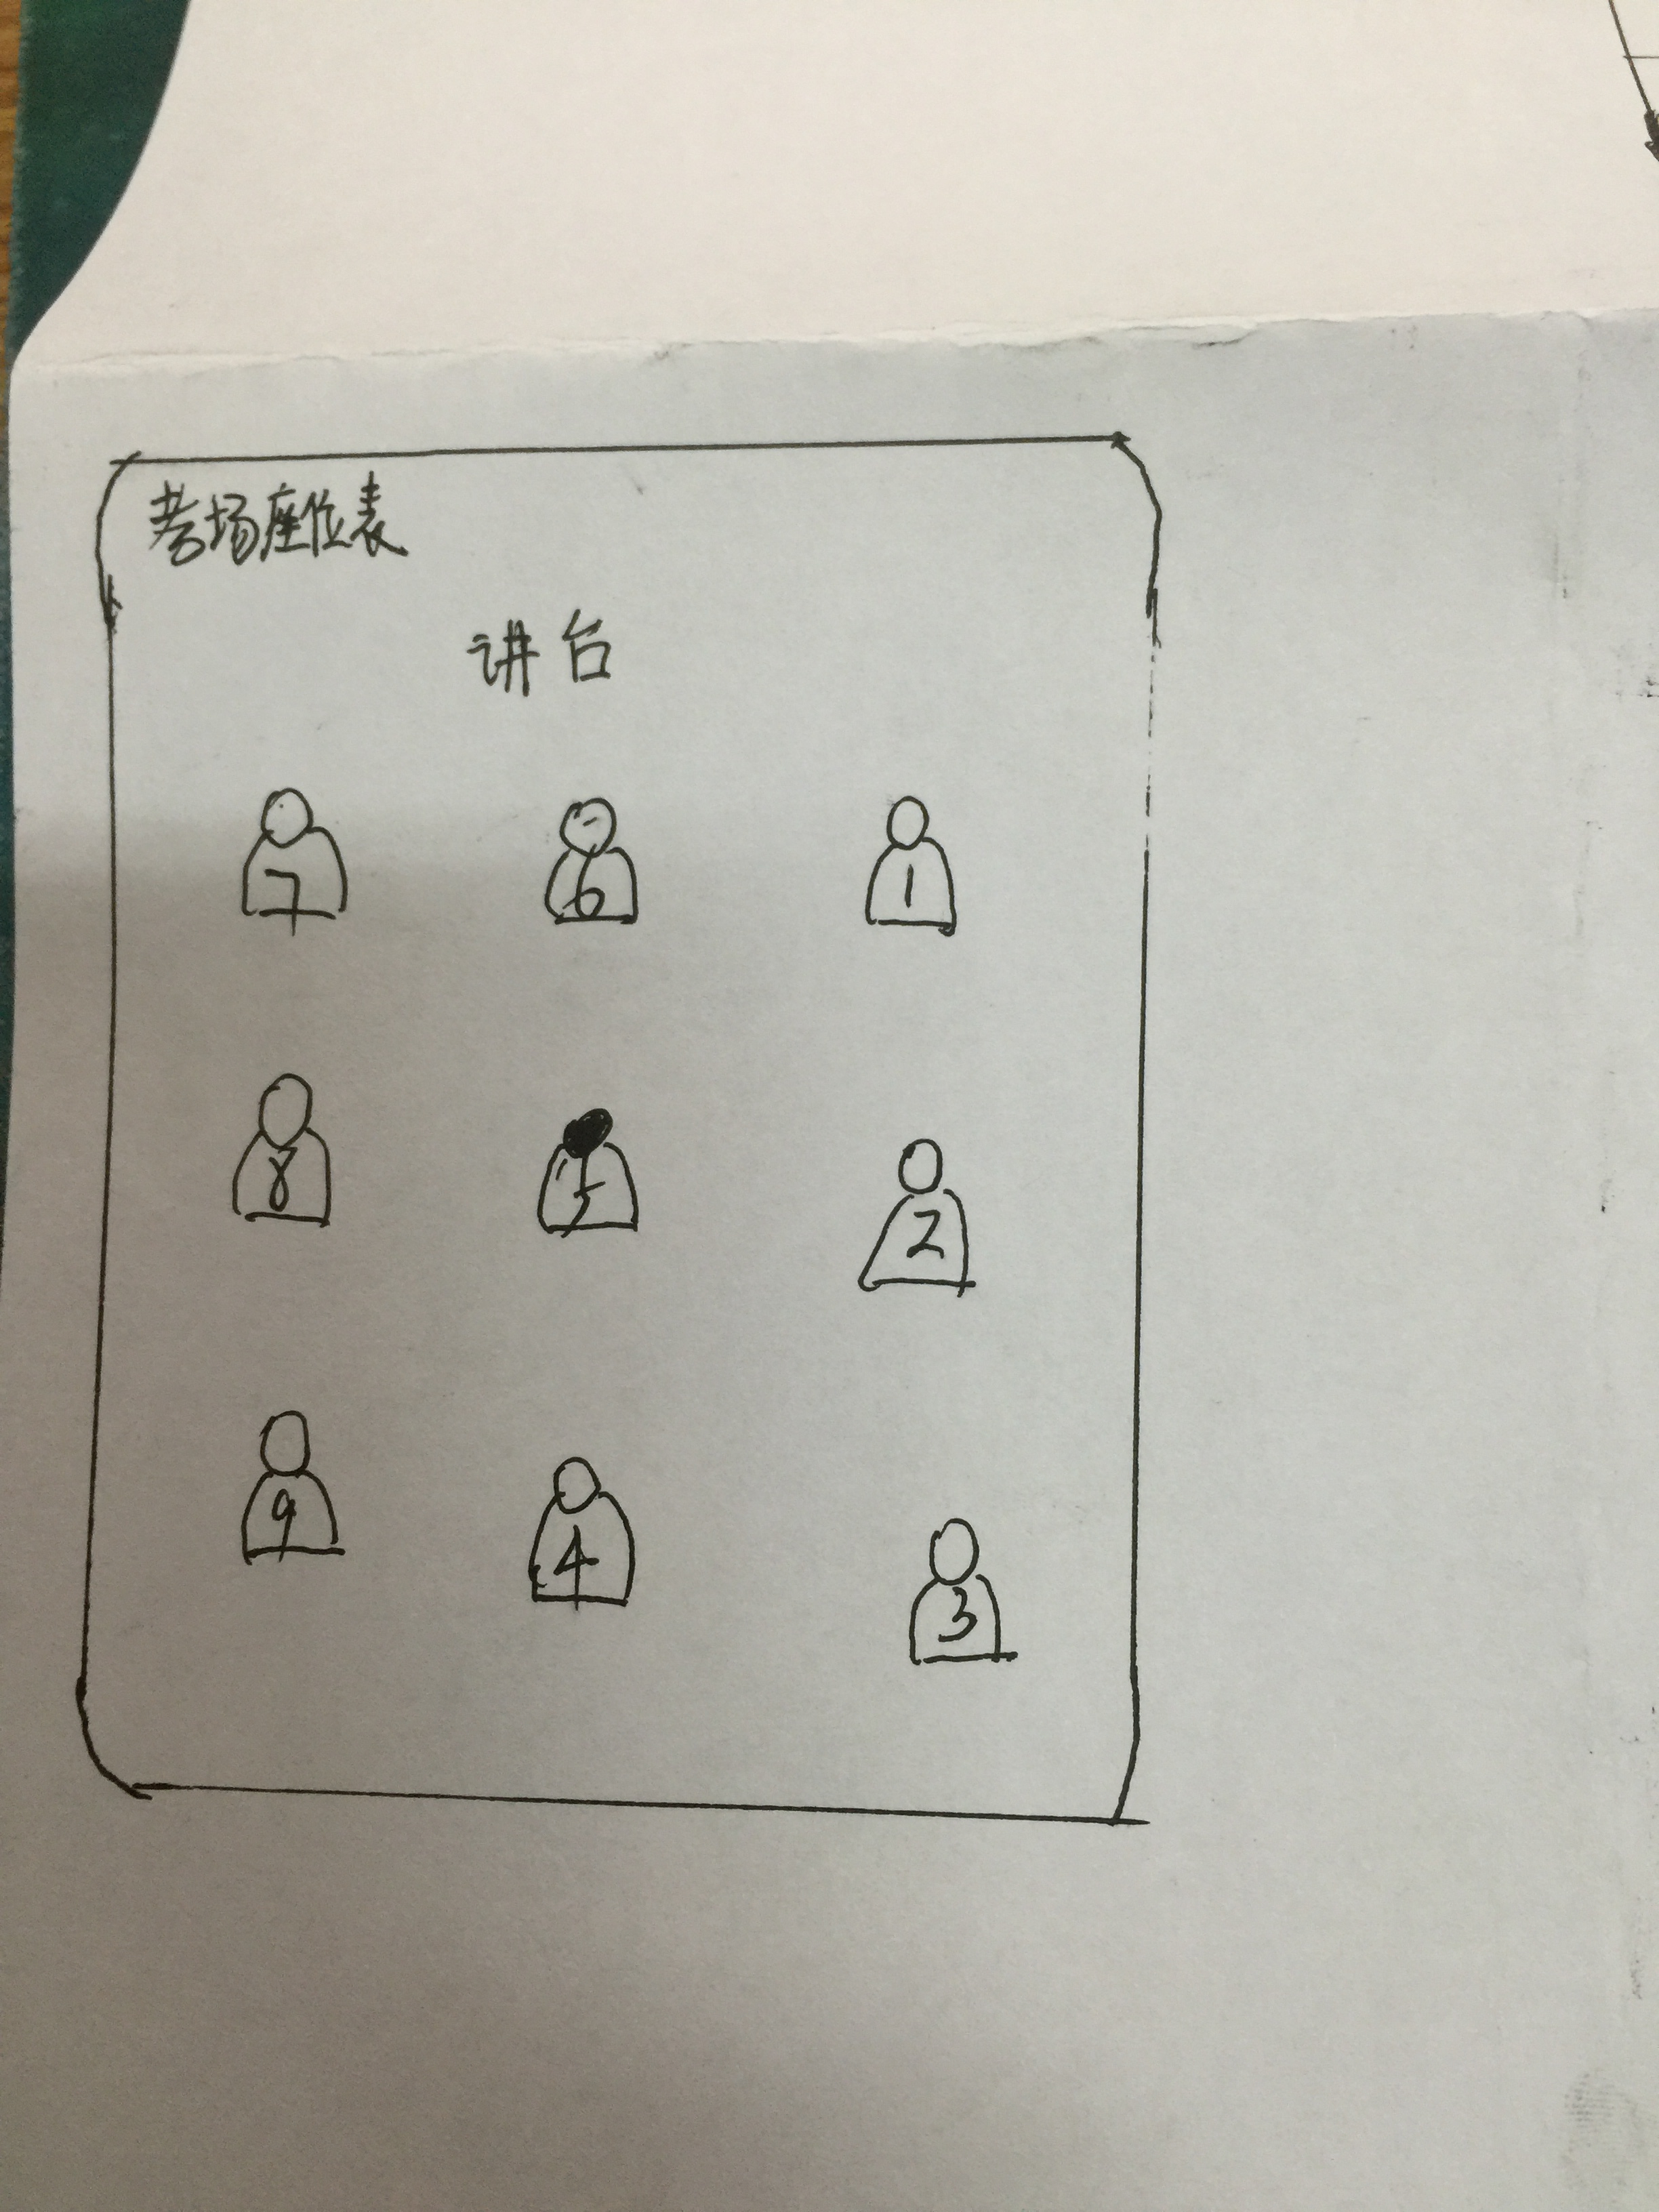 考场座位表
讲台
7 6 1
8 5 2
9 4 3